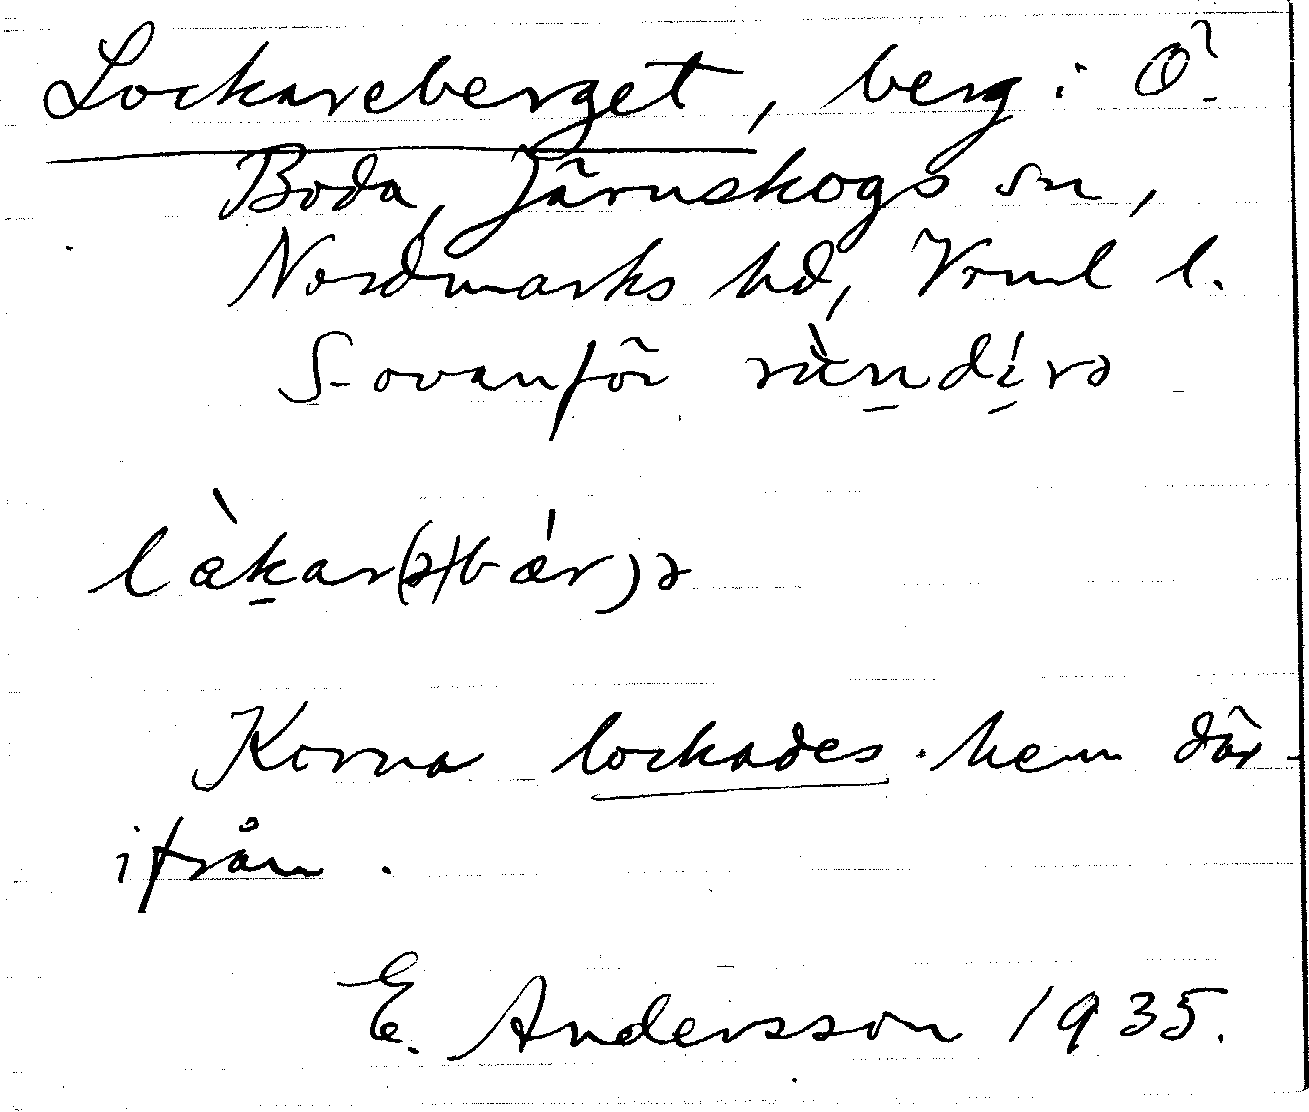 Lockareberget, berg i Ö.
Boda, Järnskogs sn,
Nordmarks hd, Vrml l.
S-ovanför
làkar(ə)bǽrjə
Korna lockades hem där-
ifrån.
E. Andersson 1935.